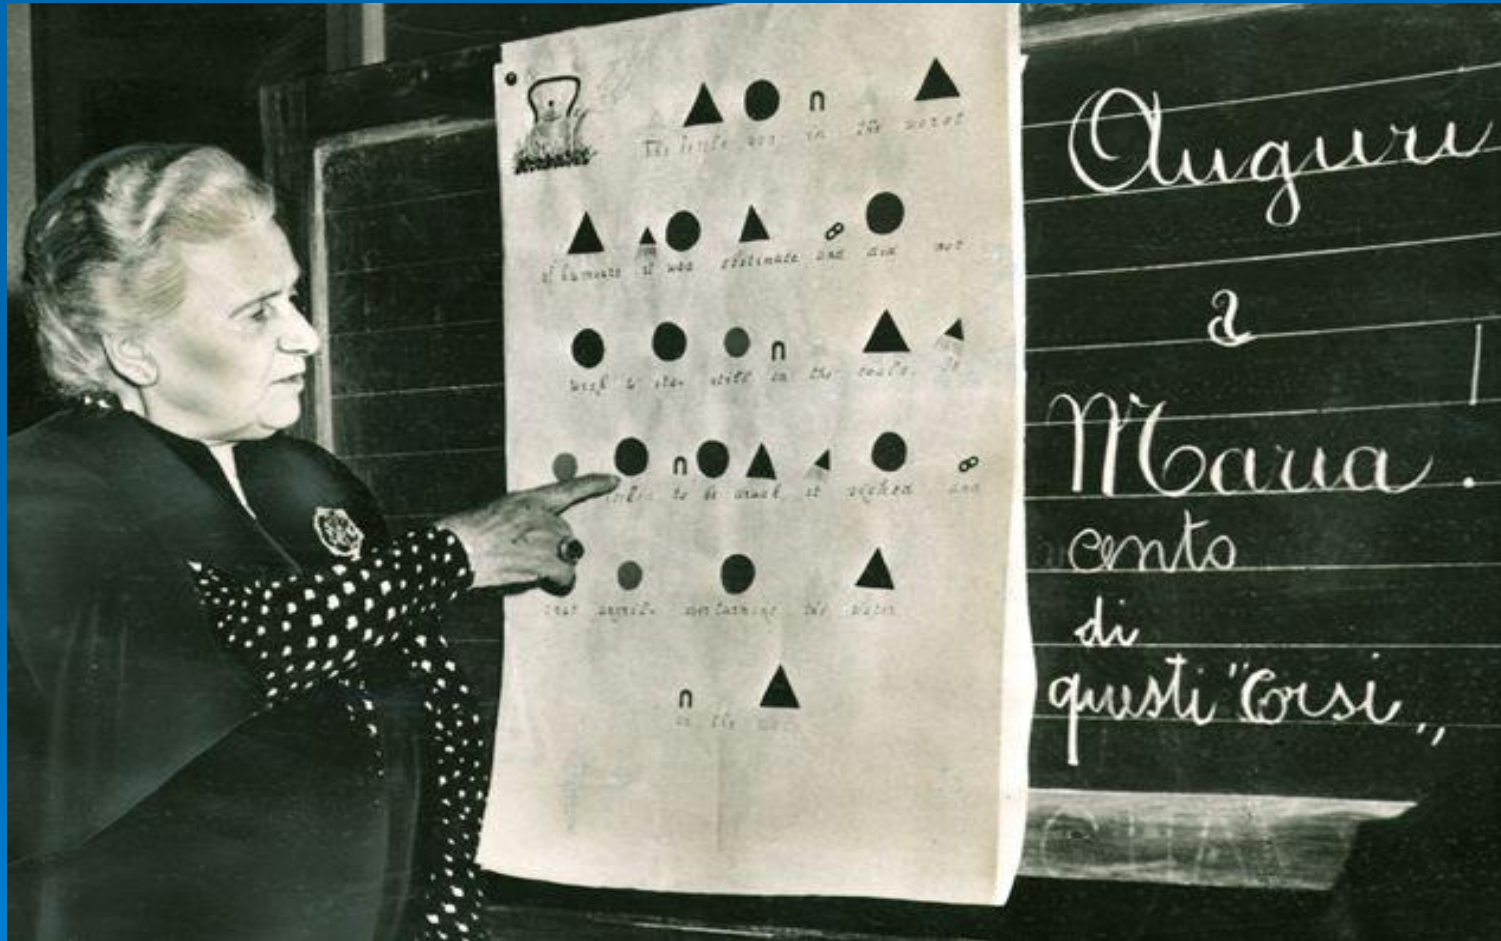 The kettle was in the worst
of humours it was obstinate and did not
wish to stay still on the coals. It
to be drunk it and
that overturning the water
in the
Auguri
a
Maria.
cento
di
questi "Corsi„